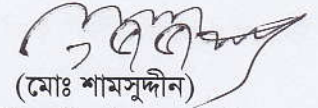 (মোঃ শামসুদ্দীন)